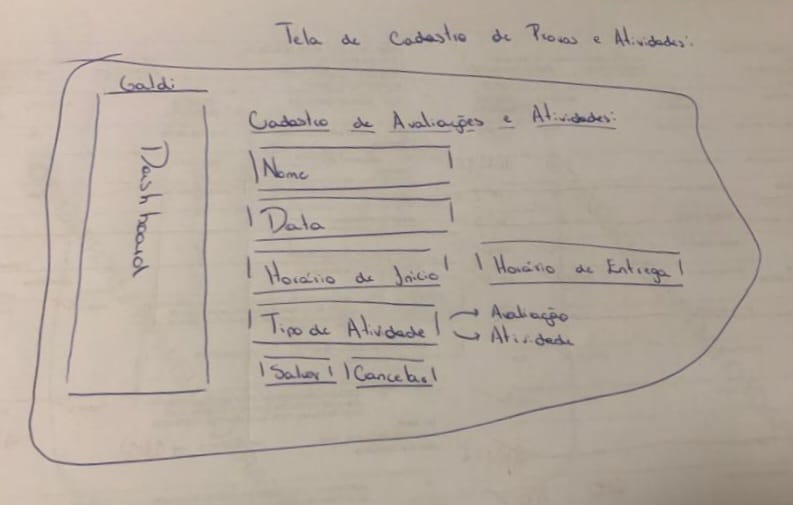 Tela de Cadastro de Provas e Atividades:
Galdi
Dashboard
Cadastro de Avaliações e Atividades:
Nome
Data
Horário de Início
Horário de Entrega
Tipo de Atividade
Avaliação
Atividade
Salvar
Cancelar